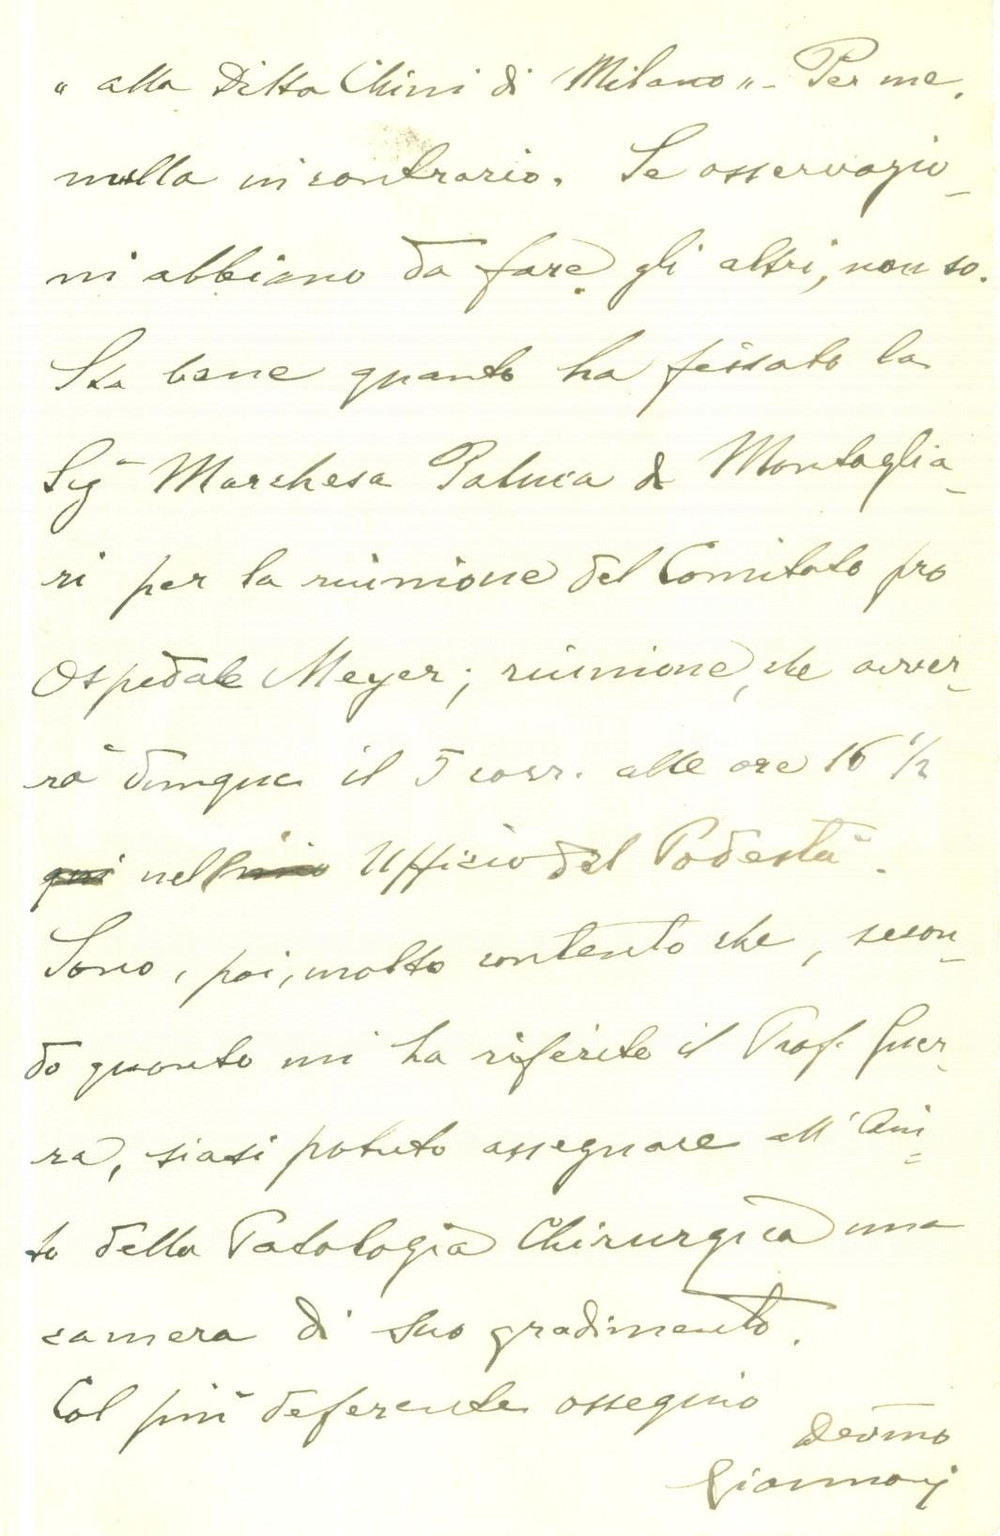 " alla Ditta Chini di Milano „ - Per me,
nulla in contrario. Se osservazio-
ni abbiano da fare gli altri, non so.
Sta bene quanto ha fissato la
Sigª Marchesa Patuca di Montaglia-
ri per la riunione del Comitato pro
Ospedale Meyer; riunione, che avver-
rà dunque il 5 corr. alle ore 16 ½
nell Ufficio del Podestà.
Sono, poi, molto contento che, secon-
do quanto mi ha riferito il Prof. Guer-
ra, siasi potuto assegnare all'Aiu=
to della Patologia Chirurgica una
camera di suo gradimento.
Col più deferente ossequio
Devṁo